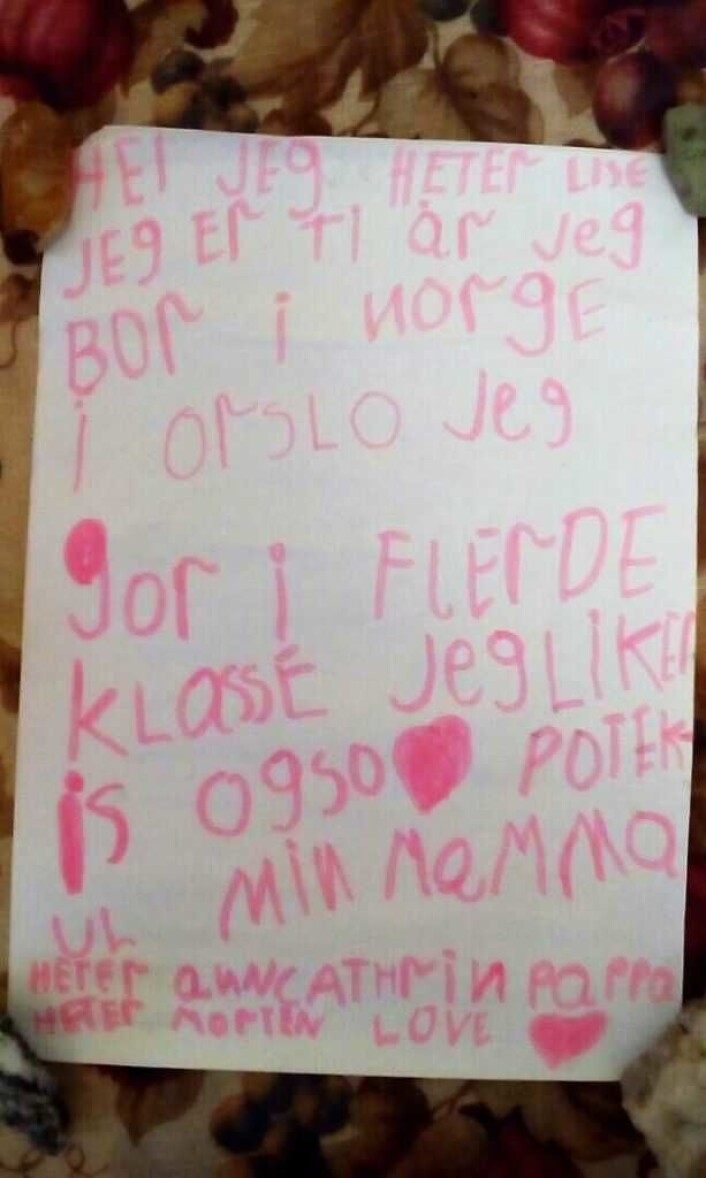 HEI JEg HETEr LISE
JEg Er TI år jeg
BOr i norgE
i OrSLO Jeg
gor i FLErDE
KLassE JegLiKEr
is ogso ❤ POTEK
UL min MaMMa
HETEr annCATHrin PaPPa
HETEr MOrTEN LOVE ❤